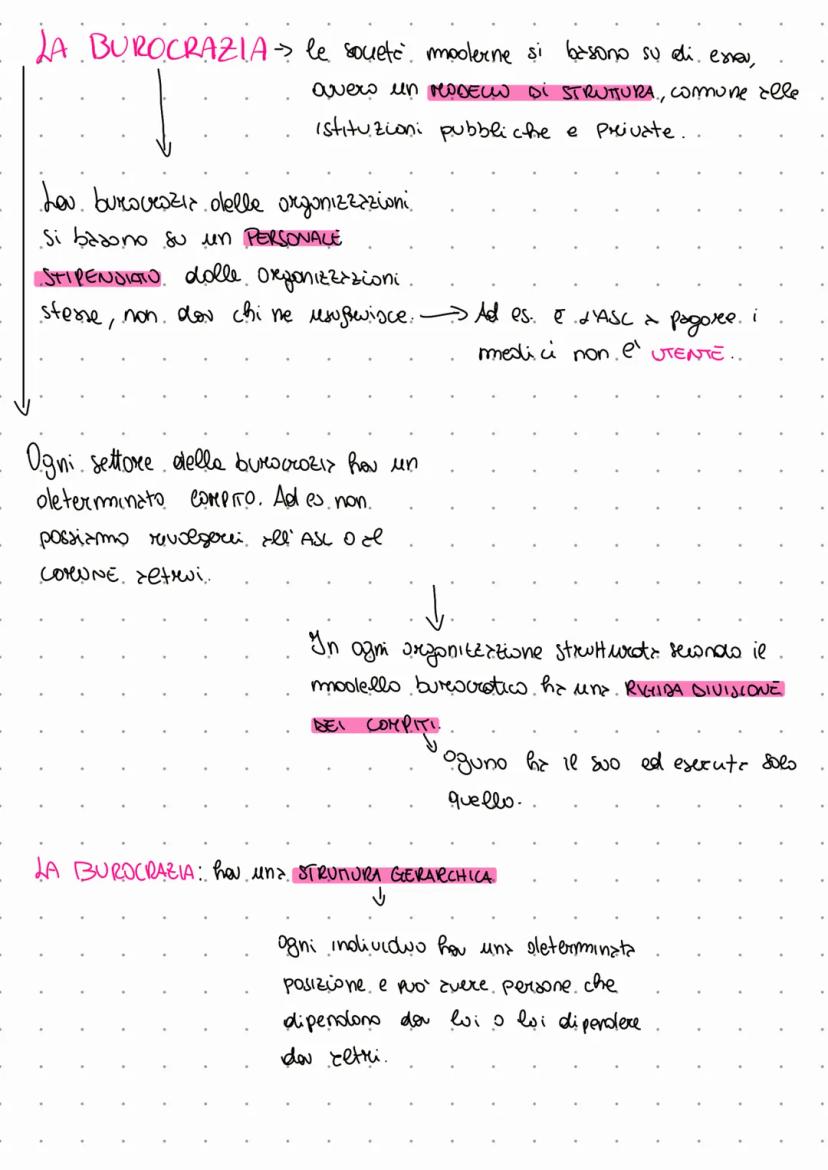 LA BUROCRAZIA → le società moderne si basano su di essa,
ovvero un MODELLO DI STRUTTURA, comune alle
istituzioni pubbliche e private.
La burocrazia delle organizzazioni
si basano su un PERSONALE
STIPENDIATO dalle organizzazioni
stesse, non da chi ne usufruisce. → Ad es. È l'ASL a pagare i
medici non è UTENTE.
Ogni settore della burocrazia ha un
determinato COMPITO. Ad es non
possiamo rivolgerci all'ASL O al
COMUNE altrui.
In ogni organizzazione strutturata secondo il
modello burocratico ha una RIGIDA DIVISIONE
DEI COMPITI.
Oguno ha il suo ed esecuta solo
quello.
LA BUROCRAZIA: ha una STRUTTURA GERARCHICA
ogni individuo ha una determinata
posizione e può avere persone che
dipendono da lui o lui dipendere
da altri.